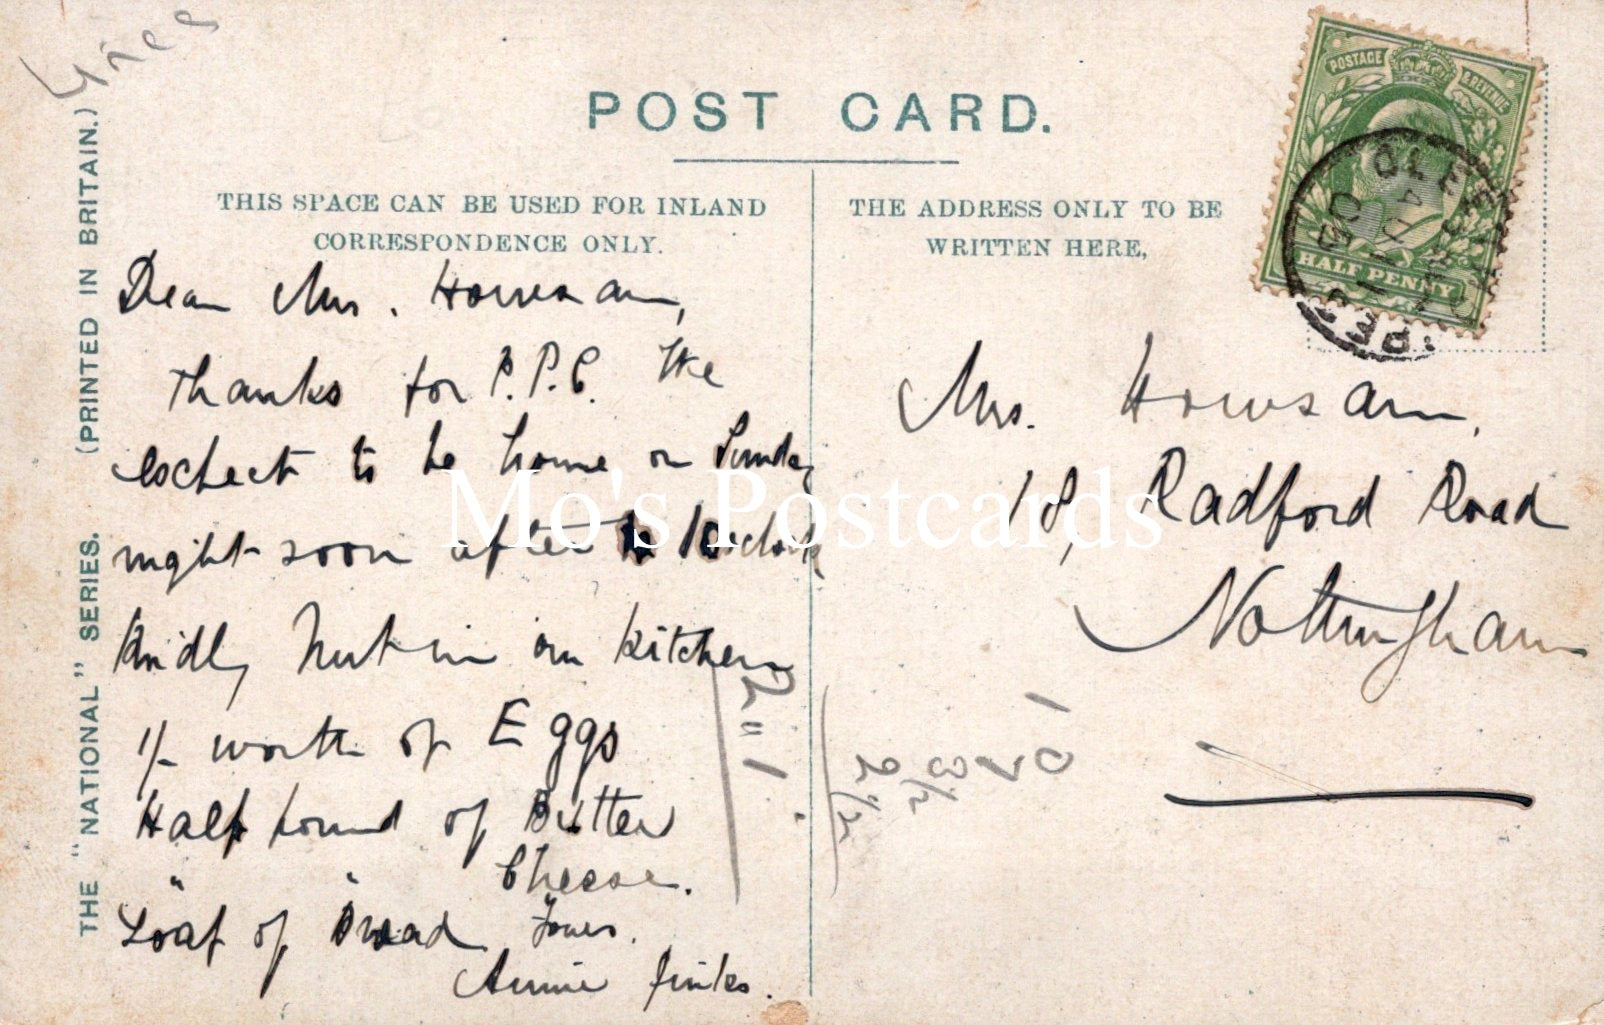 Lines
POST CARD.
THIS SPACE CAN BE USED FOR INLAND
CORRESPONDENCE ONLY.
THE ADDRESS ONLY TO BE
WRITTEN HERE,
POSTAGE & REVENUE
HALF PENNY
THE "NATIONAL" SERIES. (PRINTED IN BRITAIN.)
Dear Mrs. Howsam,
Thanks for P.P.C. We
expect to be home on Sunday
night soon after 10 oclock
Kindly Put in our Kitchen
1/- worth of Eggs
Half pound of Butter
" " Cheese.
Loaf of Bread Yours.
Annie Jinks.
Mrs. Howsam,
18, Radford Road
Nottingham
10
7
3½
2½
2 " 1
Mo's Postcards